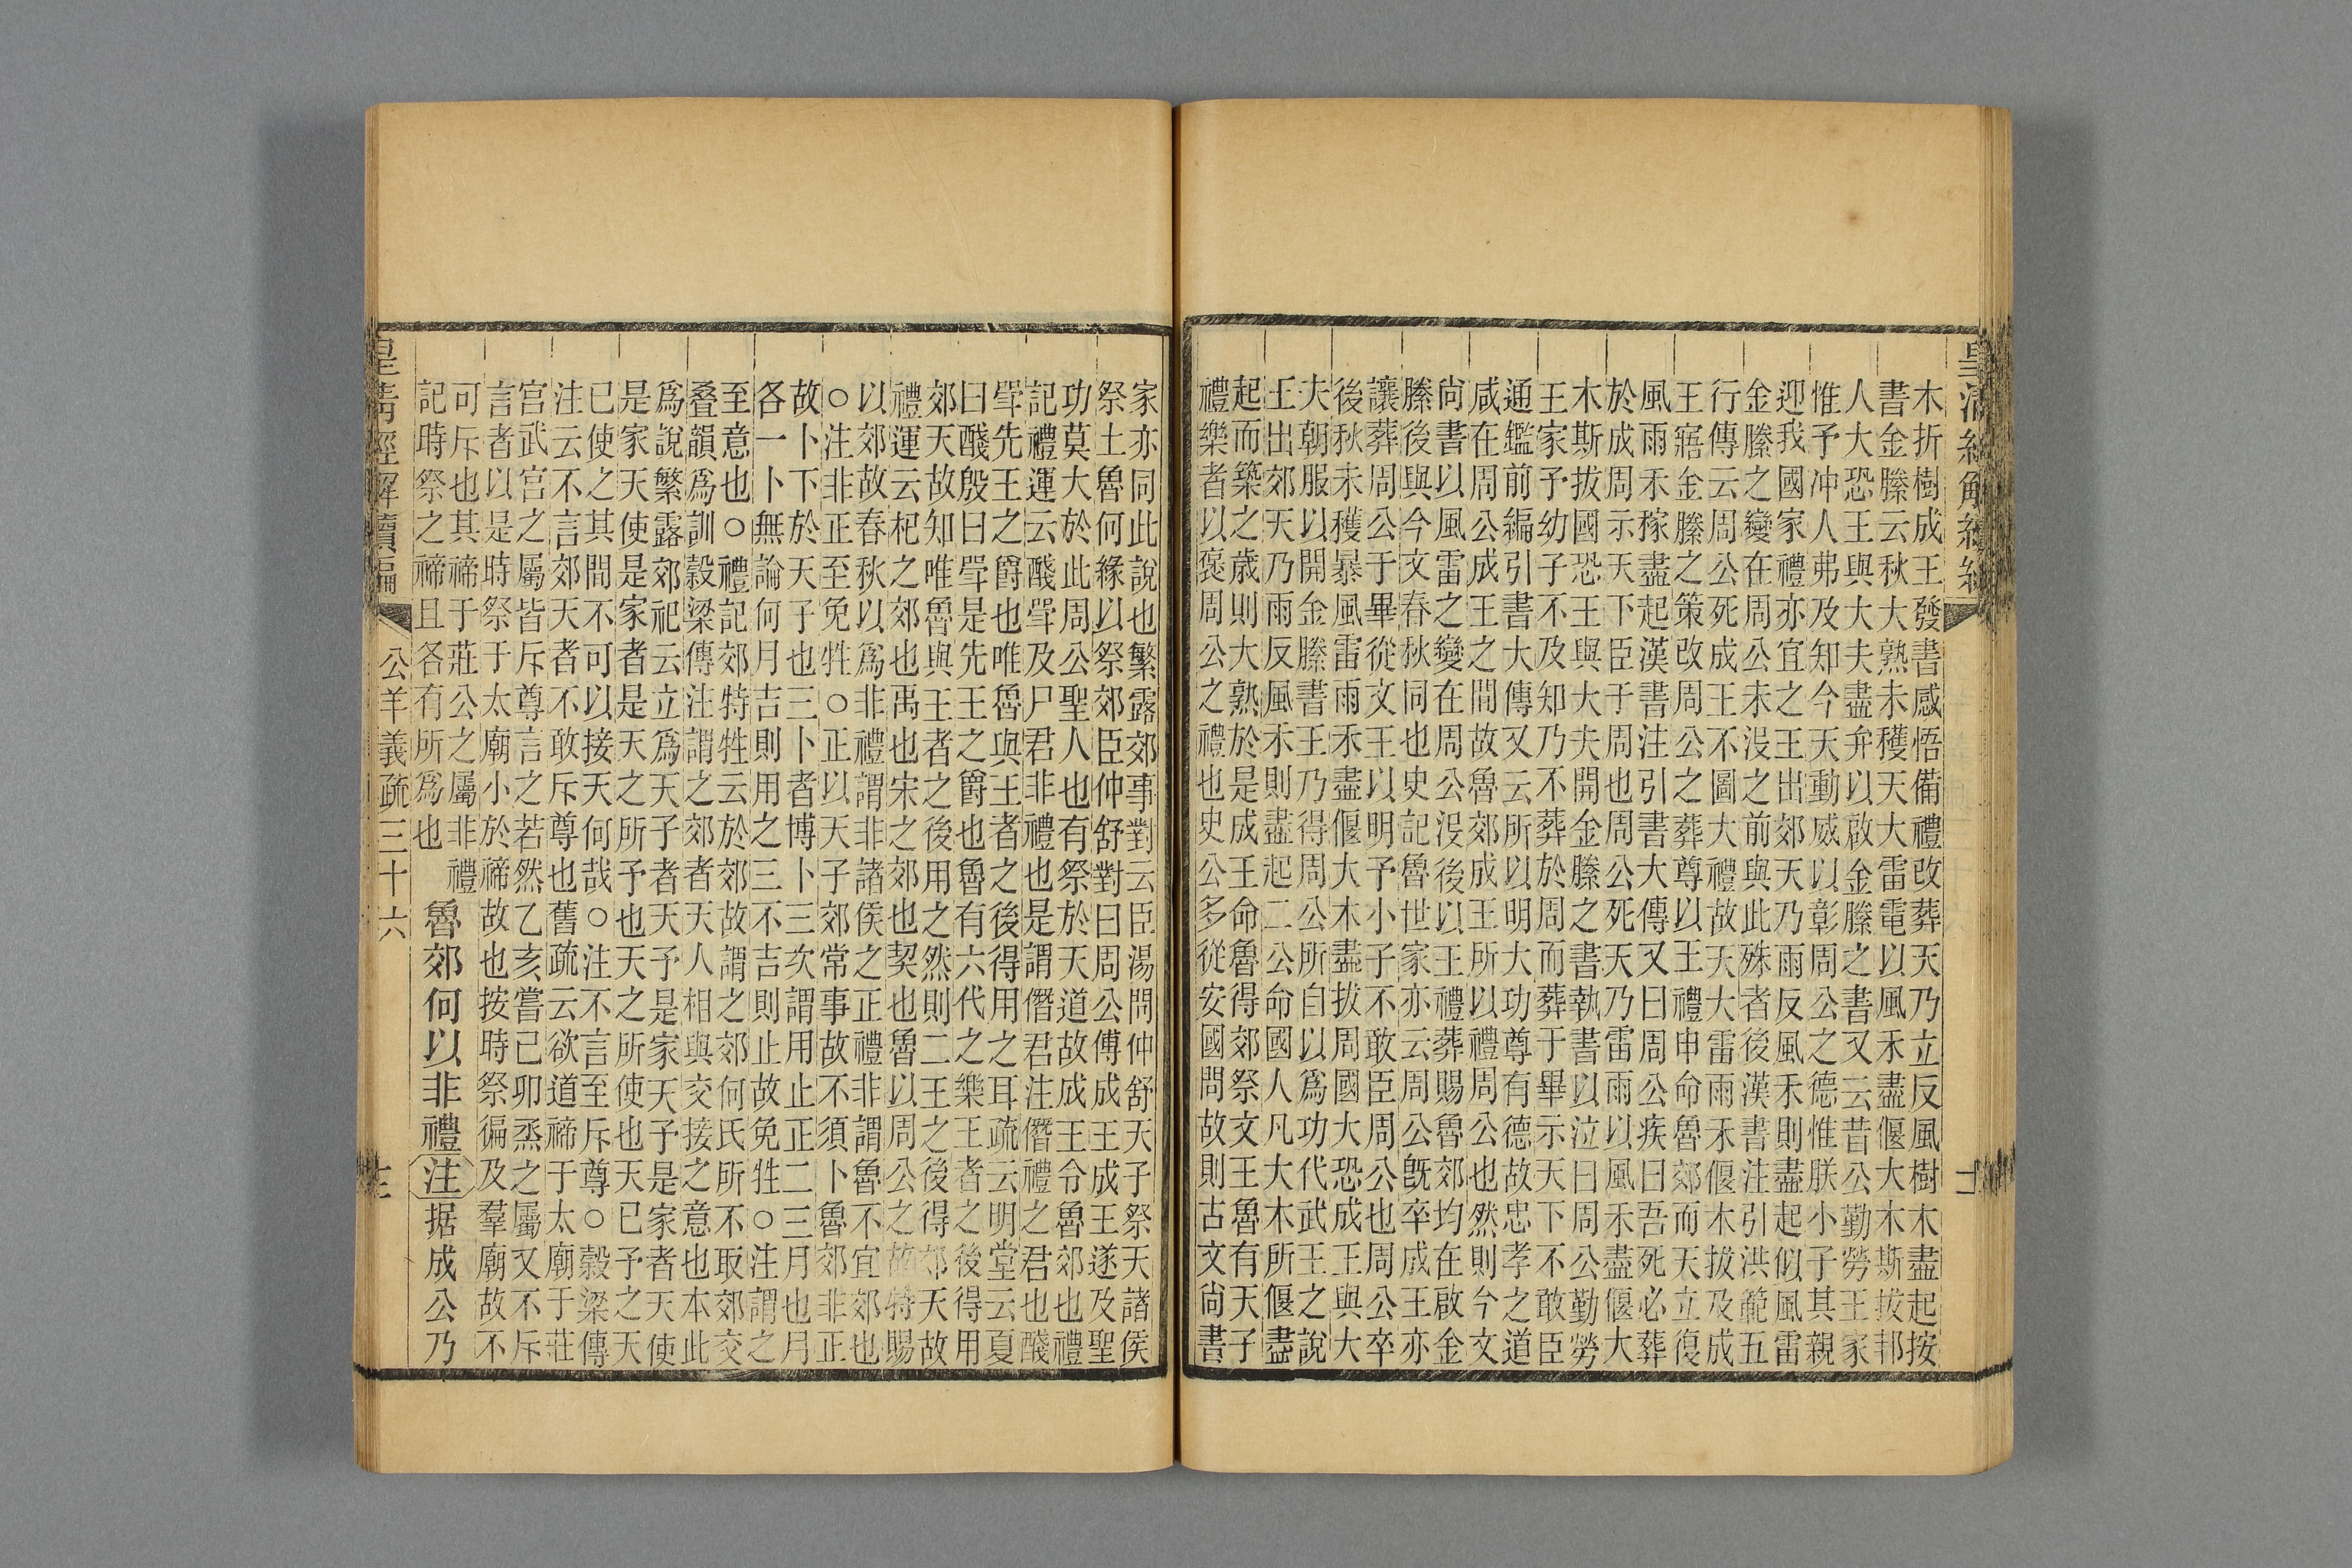 皇清經解續編
木折樹成王發書感悟備禮改葬天乃立反風樹木盡起按
書金縢云秋大熟未穫天大雷電以風禾盡偃大木斯拔邦
人大恐王與大夫盡弁以啟金縢之書又云昔公勤勞王家
惟予冲人弗及知今天動威以彰周公之德惟朕小子其親
迎我國家禮亦宜之王出郊天乃雨反風禾則盡起似風雷
金縢之變在周公未沒之前與此殊者後漢書注引洪範五
行傳云周公死成王不圖大禮故天大雷雨禾偃木拔及成
王寤金縢之策改周公之葬尊以王禮申命魯郊而天立復
風雨禾稼盡起漢書注引書大傳又曰周公疾曰吾死必葬
於成周示天下臣于周也周公死天乃雷雨以風禾盡偃大
木斯拔國恐王與大夫開金縢之書執書以泣曰周公勤勞
王家予幼子不及知乃不葬於周而葬于畢示天下不敢臣
通鑑前編引書大傳又云所以明大功尊有德故忠孝之道
咸在周公成王之間故魯郊成王所以禮周公也然則今文
尙書以風雷之變在周公沒後以王禮葬賜魯郊均在啟金
縢後與今文春秋同也史記魯世家亦云周公旣卒成王亦
讓葬周公于畢從文王以明予小子不敢臣周公也周公卒
後秋未穫暴風雷雨禾盡偃大木盡拔周國大恐成王與大
夫朝服以開金縢書王乃得周公所自以爲功代武王之說
王出郊天乃雨反風禾則盡起二公命國人凡大木所偃盡
起而築之歲則大熟於是成王命魯得郊祭文王魯有天子
禮樂者以襃周公之禮也史公多從安國問故則古文尙書
家亦同此說也繁露郊事對云臣湯問仲舒天子祭天諸侯
祭土魯何緣以祭郊臣仲舒對曰周公傅成王成王遂及聖
功莫大於此周公聖人也有祭於天道故成王令魯郊也禮
記禮運云醆斝及尸君非禮也是謂僭君注僭禮之君也醆
斝先王之爵也唯魯與王者之後得用之耳疏云明堂云夏
曰醆殷曰斝是先王之爵也魯有六代之樂王者之後得用
郊天故知唯魯與王者之後用之然則二王之後得郊天故
禮運云杞之郊也禹也宋之郊也契也魯以周公之故特賜
以郊故春秋以爲非禮謂非諸侯之正禮非謂魯不宜郊也
○注非正至免牲○正以天子郊常事故不須卜魯郊非正
故卜下於天子也三卜者博卜三次謂用止正二三月也月
各一卜無論何月吉則用之三不吉則止故免牲○注謂之
至意也○禮記郊特牲云於郊故謂之郊何氏所不取郊交
叠韻爲訓穀梁傳注謂之郊者天人相與交接之意也本此
爲說繁露郊祀云立爲天子者天予是家天子是家者天使
是家天使是家者是天之所予也天之所使也天已予之天
已使之其間不可以接天何哉○注不言至斥尊○穀梁傳
注云不言郊天者不敢斥尊也舊疏云欲道禘于太廟于莊
宮武宮之屬皆斥尊言之若然乙亥嘗己卯烝之屬又不斥
言者以是時祭于太廟小於禘故也按時祭徧及羣廟故不
可斥也其禘于莊公之屬非禮
記時祭之禘且各有所爲也
魯郊何以非禮注据成公乃
皇清經解續編 公羊義疏三十六